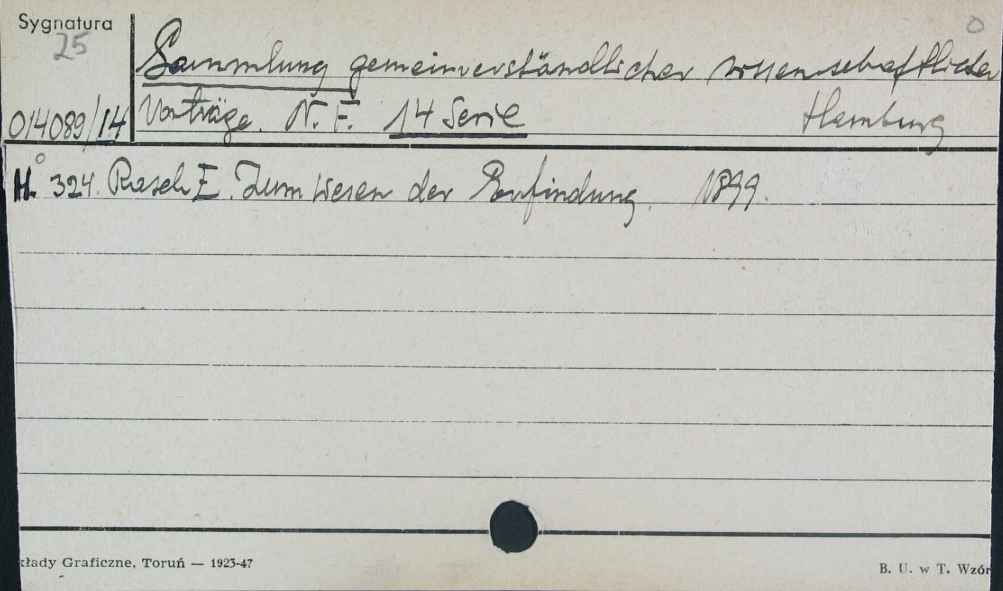 Sygnatura
25
Sammlung gemeinverständlicher wissenschaftlicher
014089/14 Vorträge. N. F. 14 Serie Hamburg
H. 324. Rasch E. Zum Wesen der Erfindung. 1899.
kłady Graficzne, Toruń — 1923-47
B. U. w T. Wzór